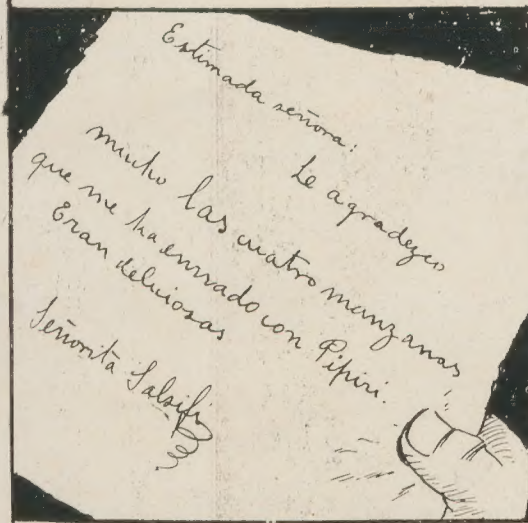 Estimada señora:
Le agradezco
mucho las cuatro manzanas
que me ha enviado con Pipiri.
Eran deliciosas
Señorita Salsifi